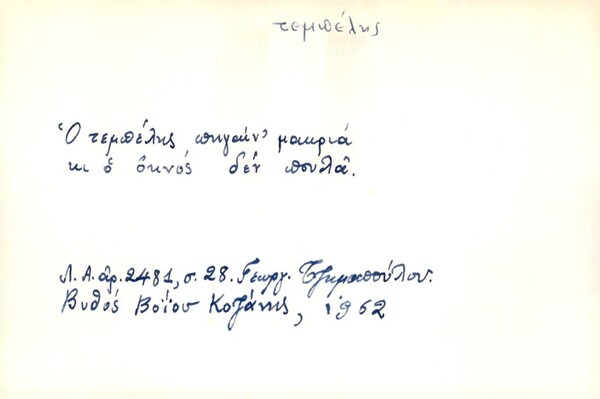 τεμπέλης
Ὁ τεμπέλης πηγαίν' μακριά
κι ὁ ὀκνός δέν πουλᾶ.
Λ. Α. ἀρ. 2481, σ. 28. Γεωργ. Τζημοπούλου.
Βυθός Βοΐου Κοζάνης, 1962